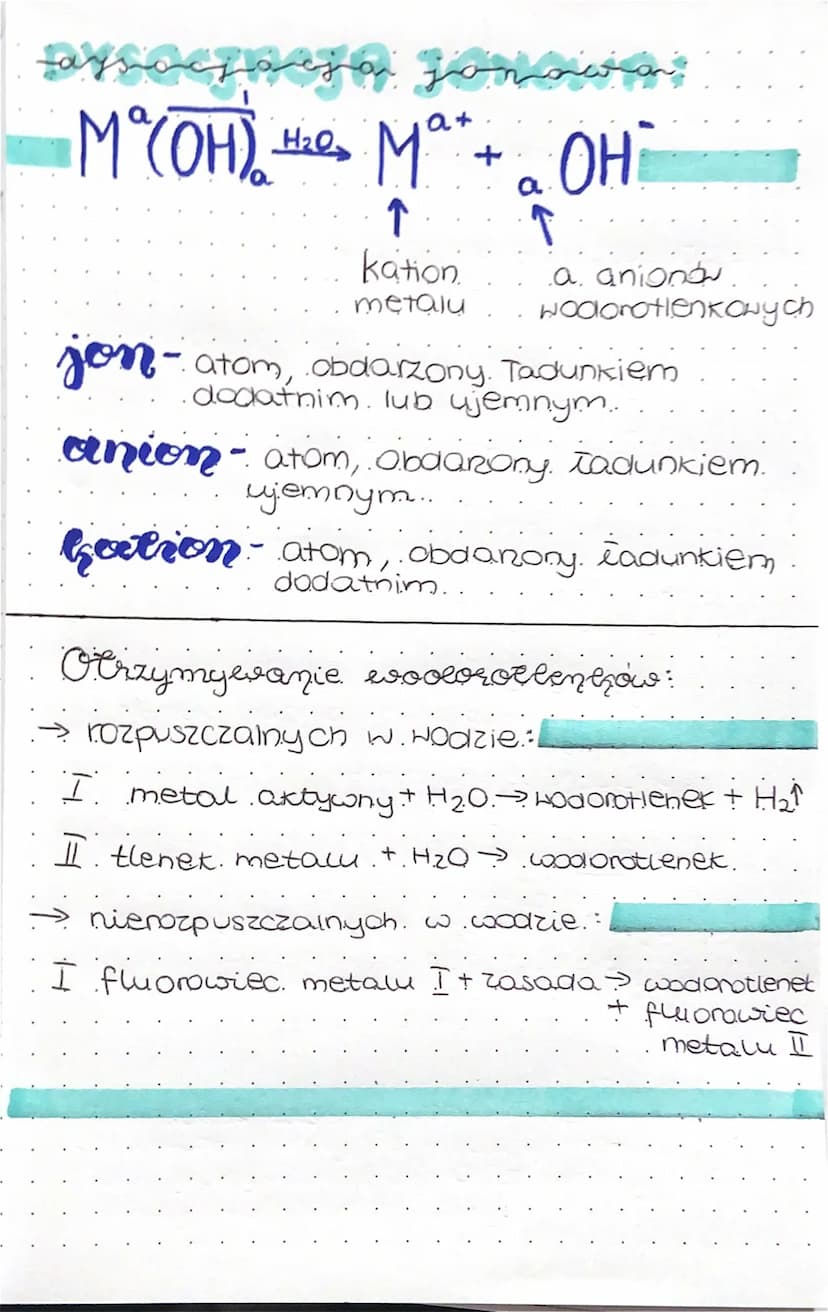 dysocjacja jonowa:
Mᵃ(OH)ᴵₐ H₂O→ Mᵃ⁺ + a OH⁻
↑ ↑
kation a anionów
metalu wodorotlenkowych
jon - atom, obdarzony ładunkiem
dodatnim lub ujemnym.
anion - atom, obdarzony ładunkiem
ujemnym.
kation - atom, obdarzony ładunkiem
dodatnim.
Otrzymywanie wodorotlenków:
→ rozpuszczalnych w wodzie:
I metal aktywny + H₂O → wodorotlenek + H₂↑
II tlenek metalu + H₂O → wodorotlenek
→ nierozpuszczalnych w wodzie:
I fluorowiec metalu I + zasada → wodorotlenek
+ fluorowiec
metalu II